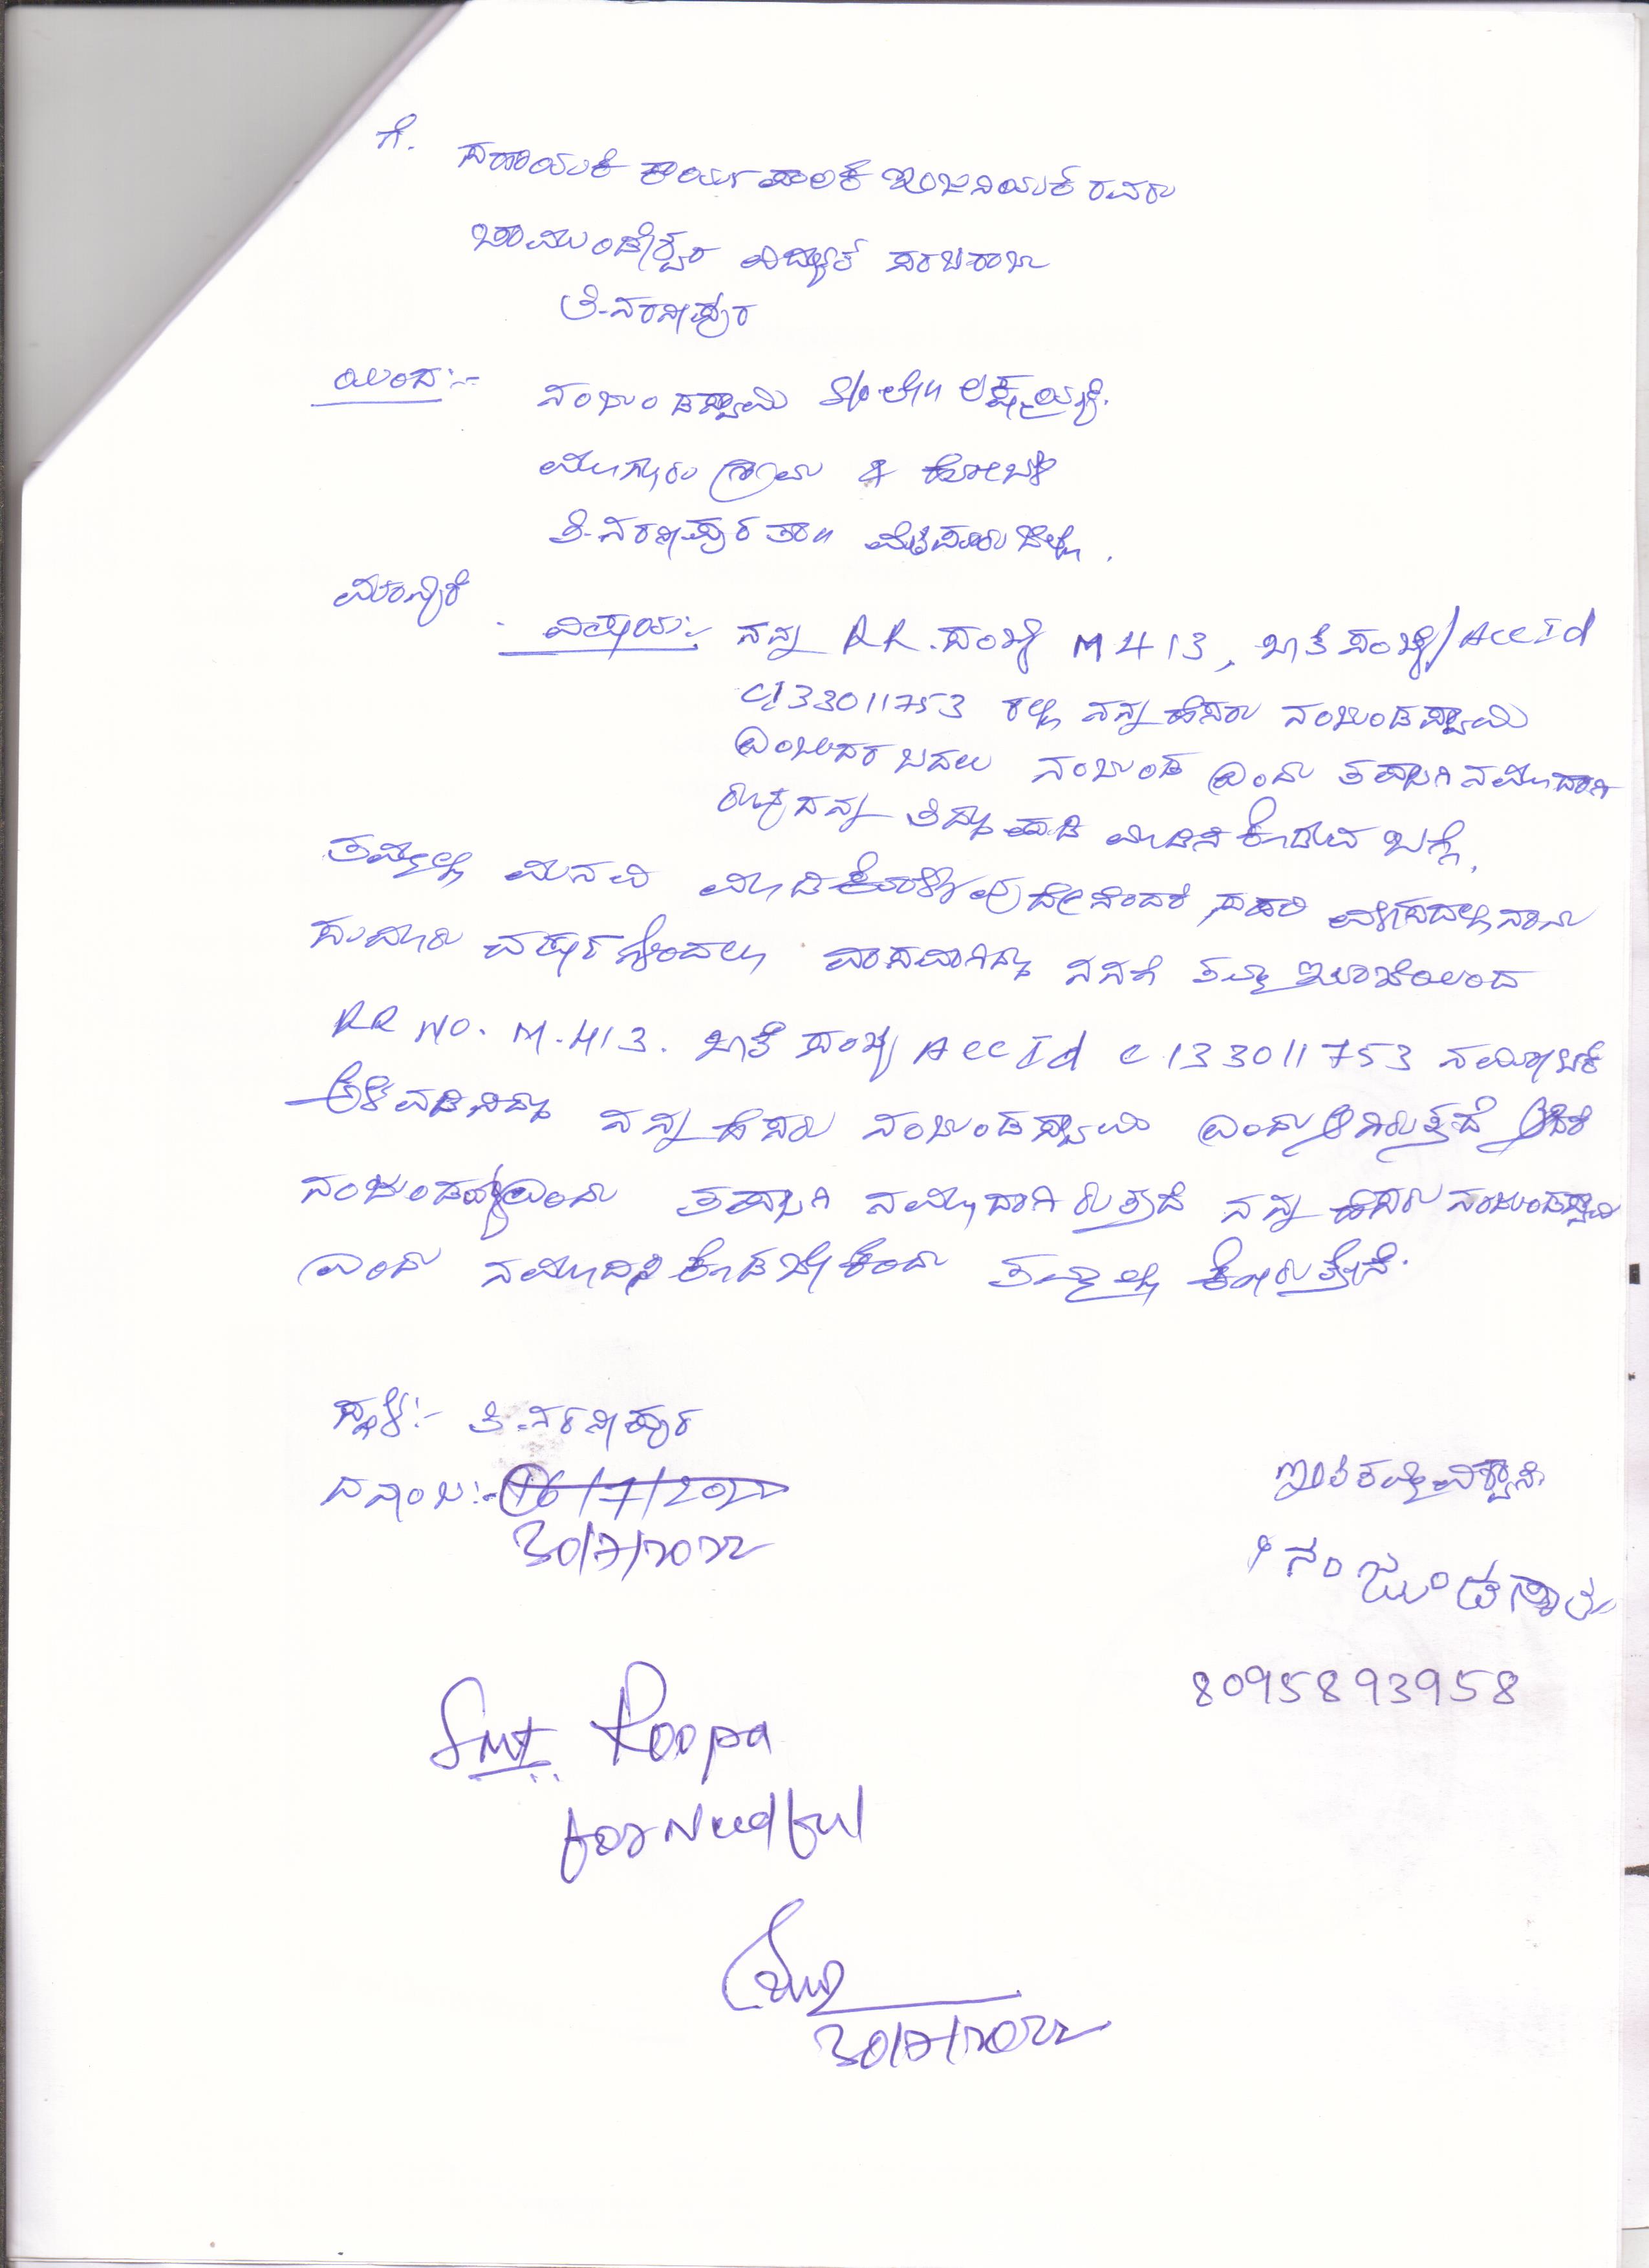 ಗೆ.
ಸಹಾಯಕ ಕಾರ್ಯಪಾಲಕ ಇಂಜಿನಿಯರ್ ರವರು
ಚಾಮುಂಡೇಶ್ವರಿ ವಿದ್ಯುತ್ ಸರಬರಾಜು
ತಿ-ನರಸೀಪುರ
ಯಿಂದ:-
ನಂಜುಂಡಸ್ವಾಮಿ S/o ಲೇ॥
ಮೂಗೂರು ಗ್ರಾಮ & ಹೋಬಳಿ
ತಿ-ನರಸೀಪುರ ತಾ॥ ಮೈಸೂರು ಜಿಲ್ಲೆ.
ಮಾನ್ಯರೆ
ವಿಷಯ:- ನನ್ನ RR.ಸಂಖ್ಯೆ M413, ಖಾತೆ ಸಂಖ್ಯೆ/Acc Id
C133011753 ರಲ್ಲಿ ನನ್ನ ಹೆಸರು ನಂಜುಂಡಸ್ವಾಮಿ
ಎಂಬುದರ ಬದಲು ನಂಜುಂಡ ಎಂದು ತಪ್ಪಾಗಿ ನಮೂದಾಗಿ
ತಿದ್ದುಪಡಿ ಮಾಡಿಸಿ ಕೊಡುವ ಬಗ್ಗೆ.
ತಮ್ಮಲ್ಲಿ ಮನವಿ ಮಾಡಿಕೊಳ್ಳುವುದೇನೆಂದರೆ ಸದರಿ ವಿಳಾಸದಲ್ಲಿ ನಾನು
ಸುಮಾರು ವರ್ಷಗಳಿಂದಲೂ ವಾಸವಾಗಿದ್ದು ನನಗೆ ತಮ್ಮ ಇಲಾಖೆಯಿಂದ
RR NO. M.413. ಖಾತೆ ಸಂಖ್ಯೆ Acc Id C133011753 ಮೀಟರ್
ಅಳವಡಿಸಿದ್ದು ನನ್ನ ಹೆಸರು ನಂಜುಂಡಸ್ವಾಮಿ ಎಂದು ಆಗಿರುತ್ತದೆ ಆದರೆ
ನಂಜುಂಡಯ್ಯ ಎಂದು ತಪ್ಪಾಗಿ ನಮೂದಾಗಿರುತ್ತದೆ ನನ್ನ ಹೆಸರು ನಂಜುಂಡಸ್ವಾಮಿ
ಎಂದು ನಮೂದಿಸಿ ಕೊಡಬೇಕೆಂದು ತಮ್ಮಲ್ಲಿ ಕೋರುತ್ತೇನೆ.
ಸ್ಥಳ:- ತಿ.ನರಸೀಪುರ
ದಿನಾಂಕ:- 16/7/2022
30/7/2022
ಇಂತಿ ತಮ್ಮ ವಿಶ್ವಾಸಿ
ನಂಜುಂಡಸ್ವಾಮಿ
8095893958
Smt. Roopa
for Needful
30/7/2022